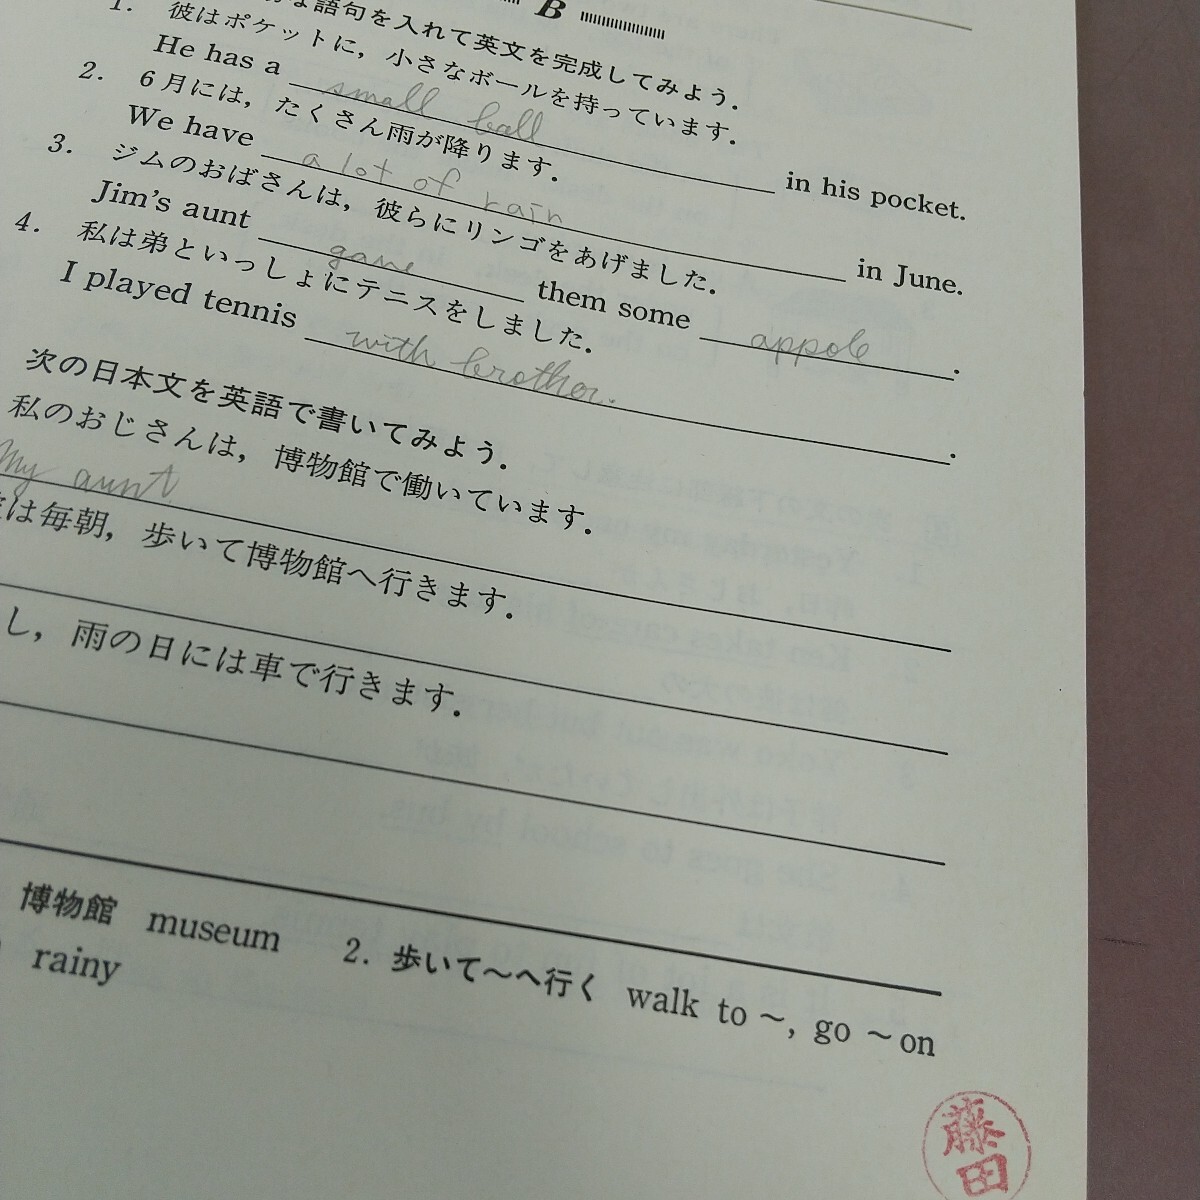 B
な語句を入れて英文を完成してみよう.
1. 彼はポケットに, 小さなボールを持っています.
He has a small ball in his pocket.
2. 6月には, たくさん雨が降ります.
We have a lot of rain in June.
3. ジムのおばさんは, 彼らにリンゴをあげました.
Jim's aunt gave them some appole.
4. 私は弟といっしょにテニスをしました.
I played tennis with brother..
次の日本文を英語で書いてみよう.
私のおじさんは, 博物館で働いています.
My aunt
は毎朝, 歩いて博物館へ行きます.
し, 雨の日には車で行きます.
博物館 museum 2. 歩いて〜へ行く walk to ~, go ~ on
rainy
藤田